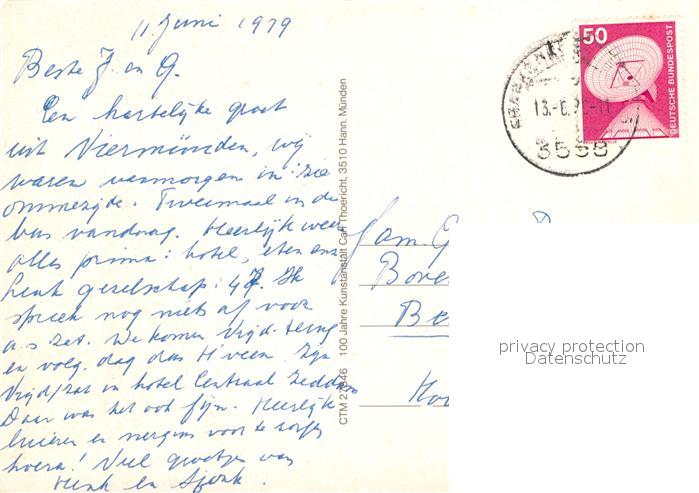 11 Juni 1979
Beste J. en G.
Een hartelijke groet
uit Viermünden, wij
waren vanmorgen in
ommezijde. Tweemaal in de
bus vandaag. Heerlijk weer
alles prima: hotel, eten enz
leuk gezelschap: 47. Ik
spreek nog niets af voor
a.s zat. We komen Vrijd. terug
en volg. dag das H'veen. Zijn
Vrijd/zat in hotel Centraal Zeddam
Daar was het ook fijn. Heerlijk
luieren en nergens voor te zorgen
hoera! Veel groetjes van
Henk en
CTM 27846 100 Jahre Kunstanstalt Carl Thoericht, 3510 Hann. Münden
50
DEUTSCHE BUNDESPOST
13.-6.
3558
Fam G
Bove
Be
Hoo
privacy protection
Datenschutz